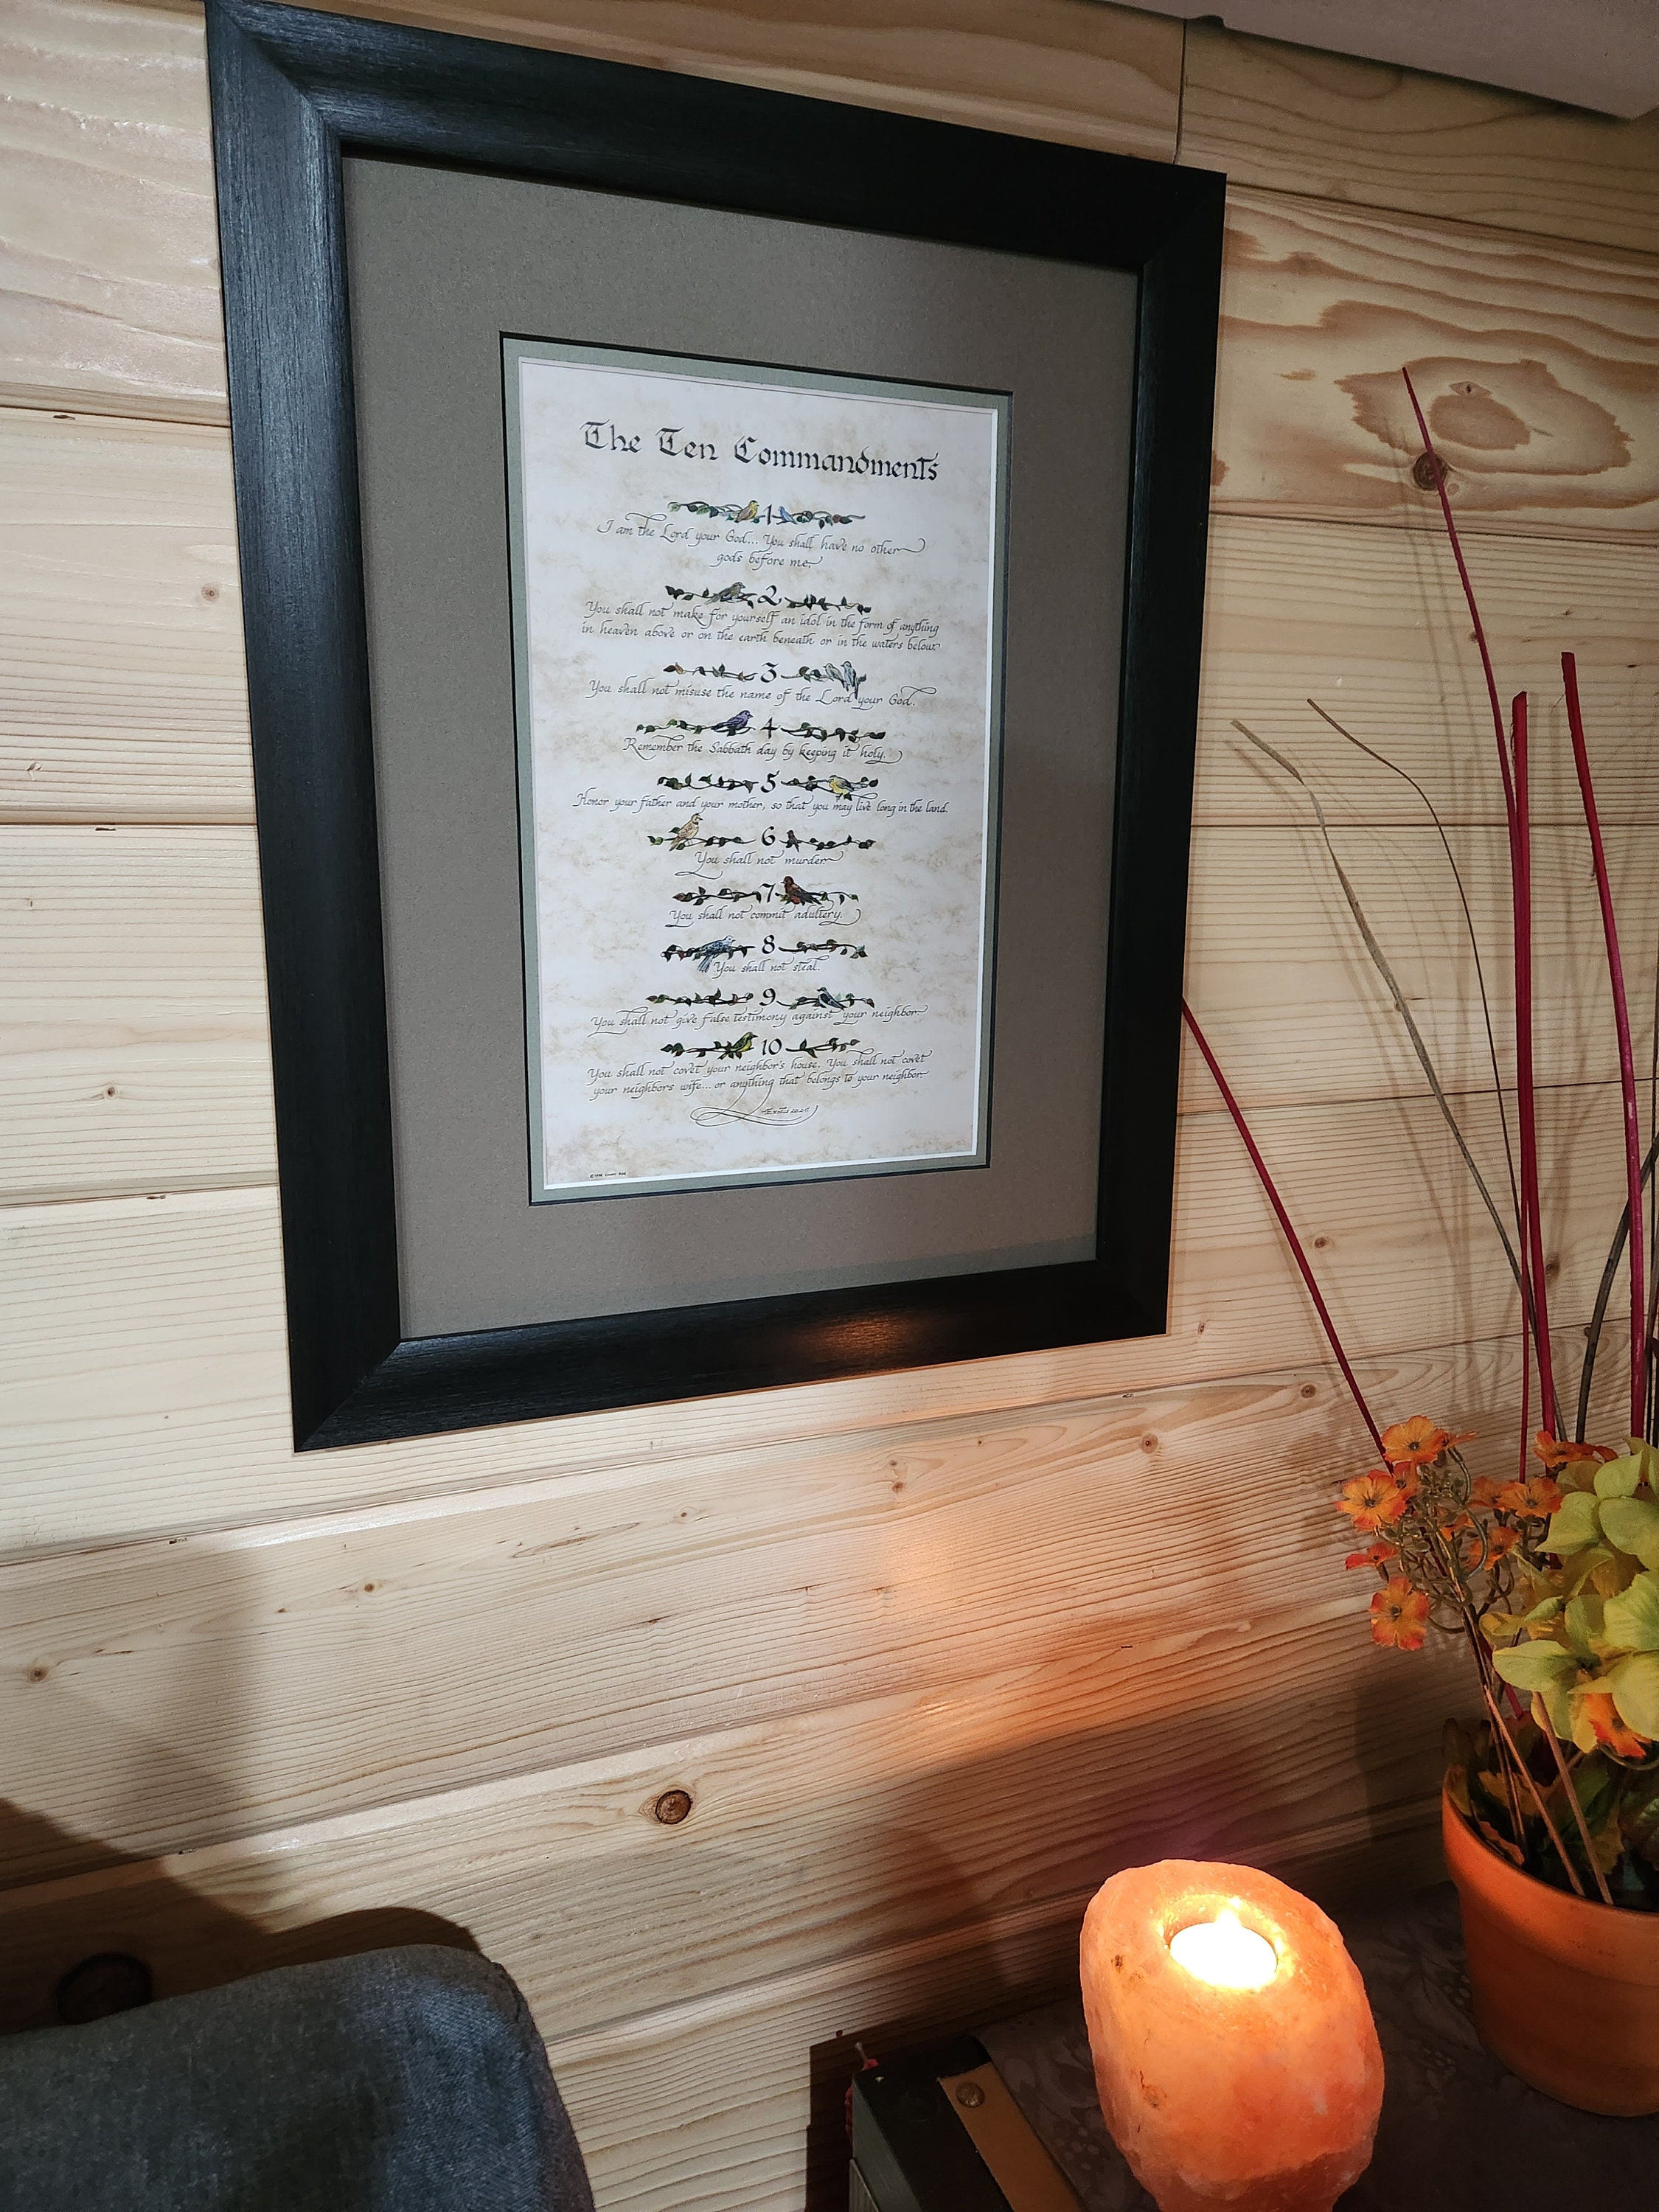 The Ten Commandments
1
I am the Lord your God... You shall have no other
gods before me.
2
You shall not make for yourself an idol in the form of anything
in heaven above or on the earth beneath or in the waters below.
3
You shall not misuse the name of the Lord your God.
4
Remember the Sabbath day by keeping it holy.
5
Honor your father and your mother, so that you may live long in the land.
6
You shall not murder.
7
You shall not commit adultery.
8
You shall not steal.
9
You shall not give false testimony against your neighbor.
10
You shall not covet your neighbor's house. You shall not covet
your neighbors wife... or anything that belongs to your neighbor.
Exodus